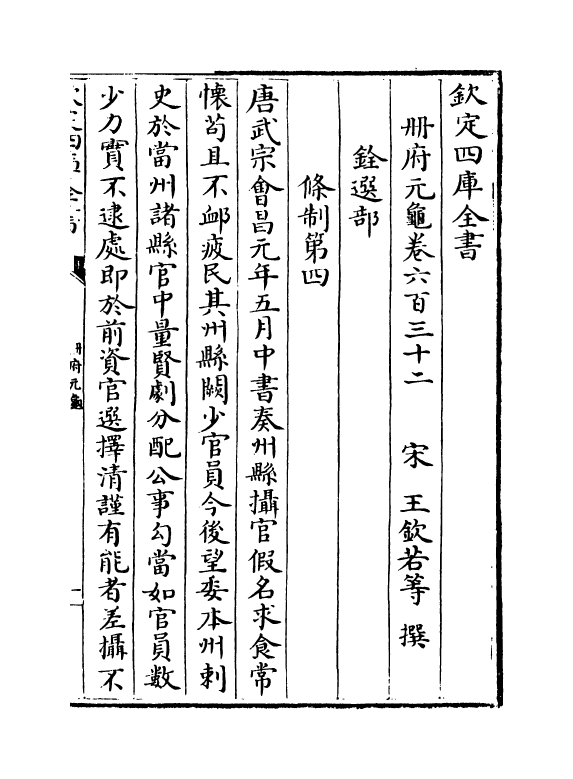 欽定四庫全書
冊府元龜卷六百三十二 宋 王欽若等 撰
銓選部
條制第四
唐武宗會昌元年五月中書奏州縣攝官假名求食常
懷苟且不邺疲民其州縣闕少官員今後望委本州刺
史於當州諸縣官中量賢劇分配公事勾當如官員數
少力實不逮處即於前資官選擇清謹有能者差攝不
冊府元龜